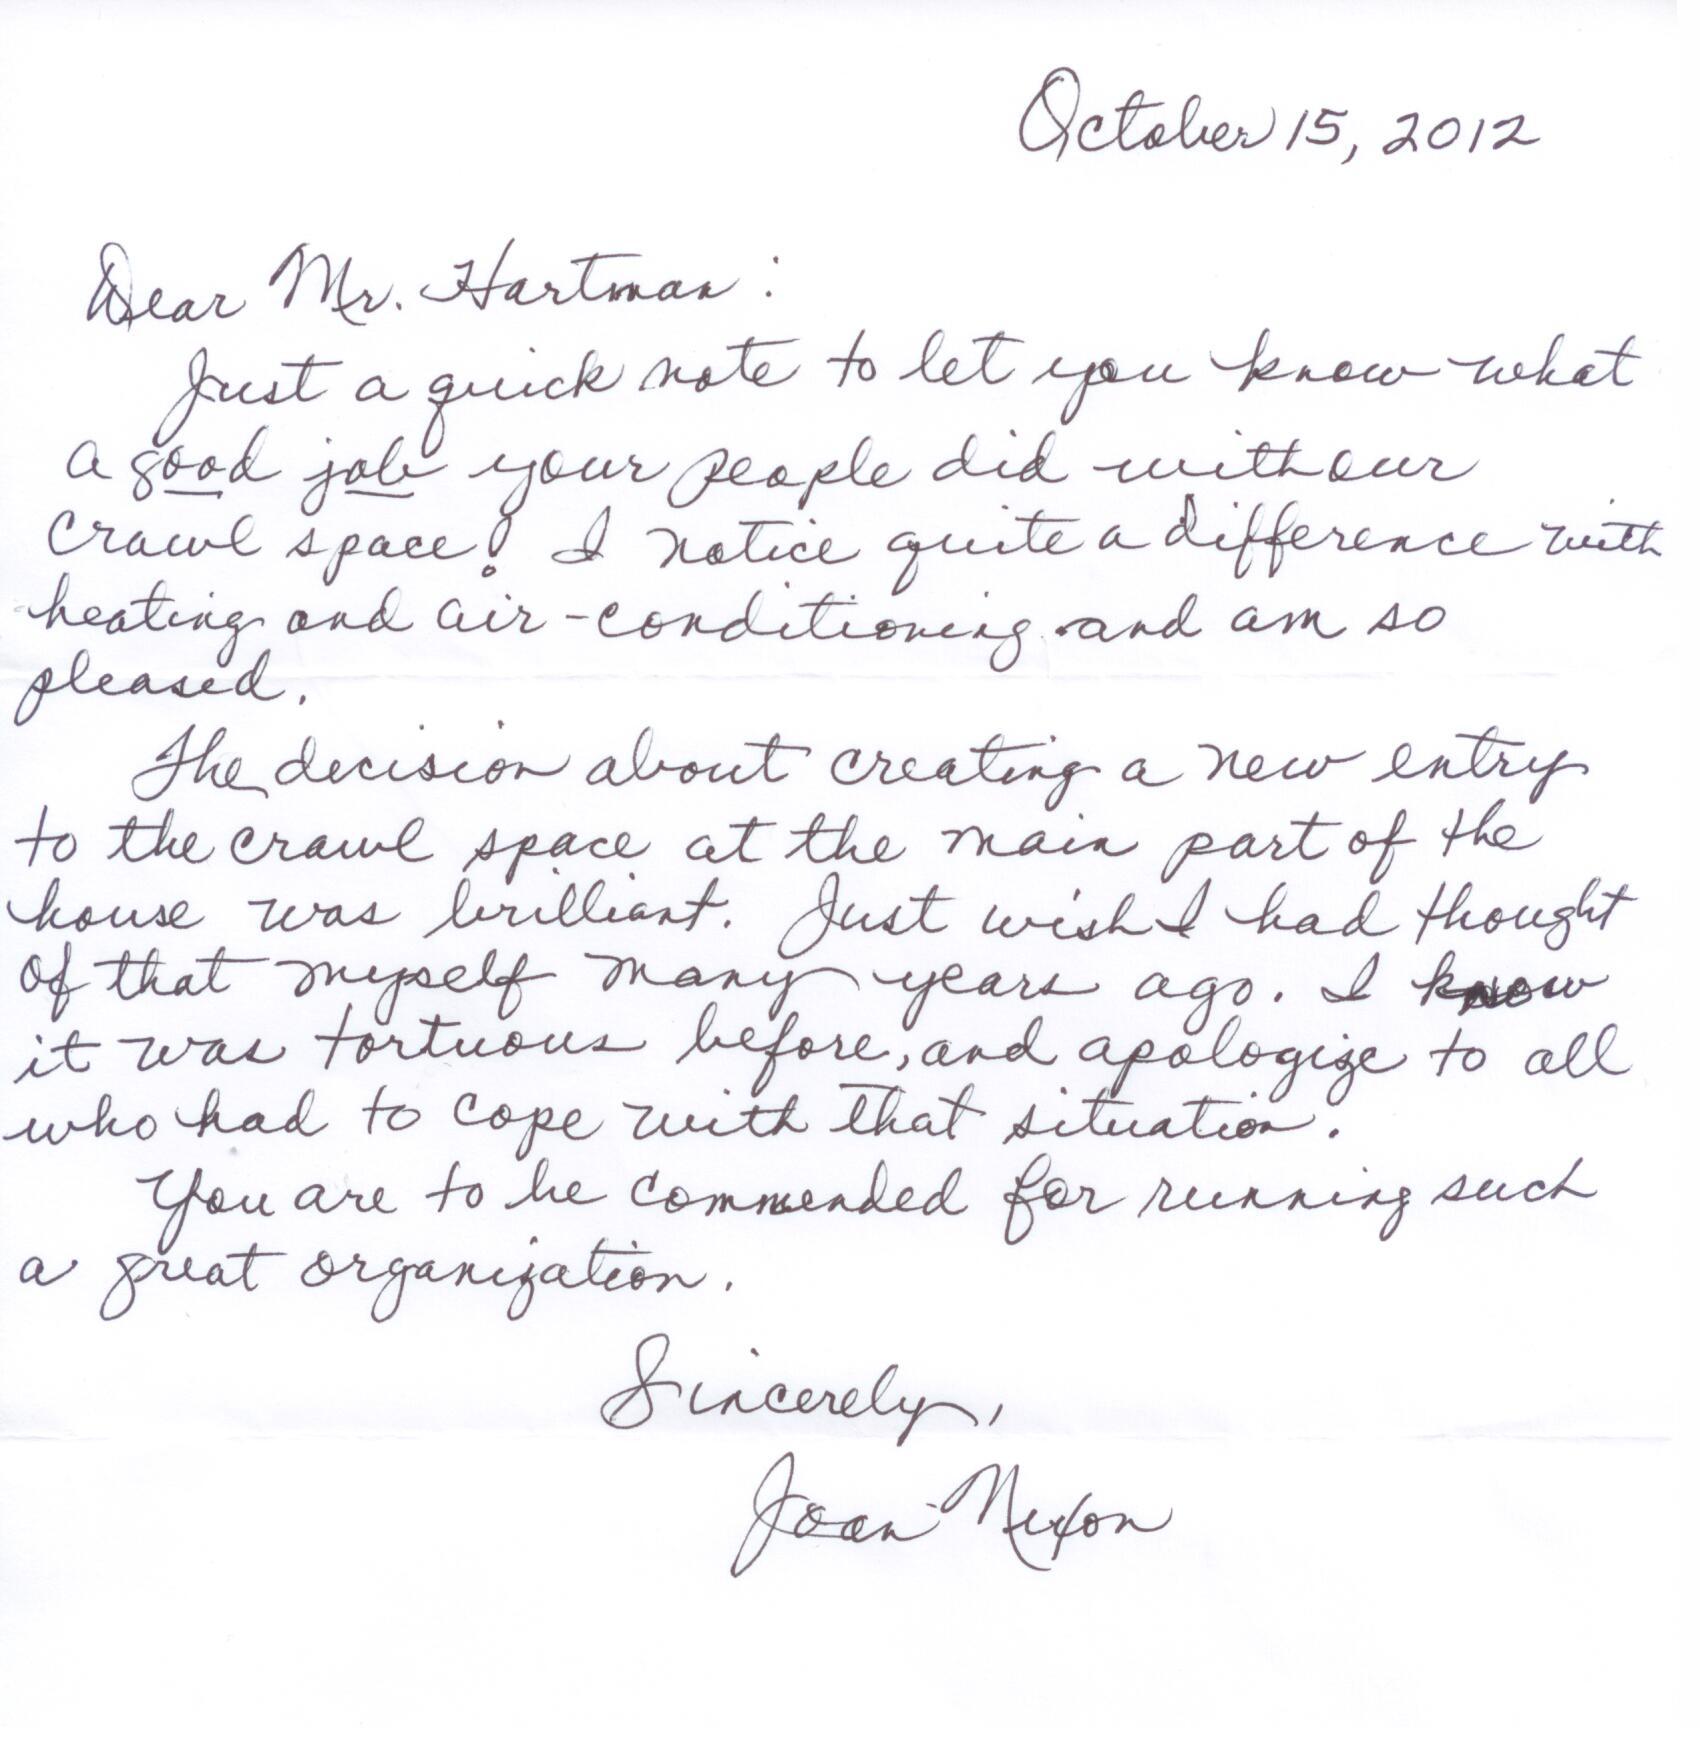 October 15, 2012
Dear Mr. Hartman:
Just a quick note to let you know what
a good job your people did with our
crawl space! I notice quite a difference with
heating and air-conditioning and am so
pleased.
The decision about creating a new entry
to the crawl space at the main part of the
house was brilliant. Just wish I had thought
of that myself many years ago. I know
it was tortuous before, and apologize to all
who had to cope with that situation.
You are to be commended for running such
a great organization.
Sincerely,
Joan Nixon